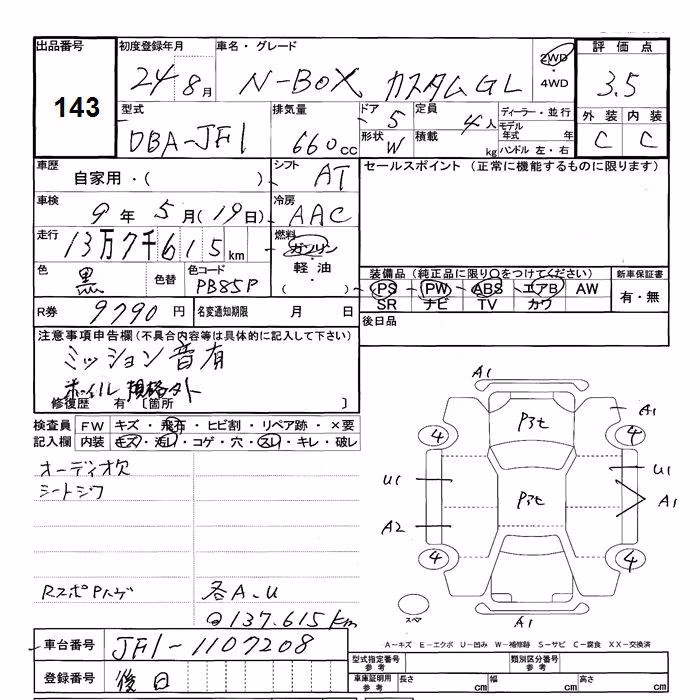 出品番号 初度登録年月 車名・グレード 2WD・4WD 評価点
143 24年8月 N-BOX カスタムGL 3.5
外装 内装
C C
型式 排気量 ドア 5 定員 4人 ディーラー・並行
DBA-JF1 660cc 形状 W 積載 kg モデル年式 年
ハンドル 左・右
車歴 自家用・( ) シフト AT セールスポイント (正常に機能するものに限ります)
車検 9年5月(19日) 冷房 AAC
走行 13万7千615km 燃料 ガソリン・軽油・( )
色 黒 色替 色コード PB85P
装備品 (純正品に限り○をつけてください) 新車保証書
PS PW ABS エアB AW 有・無
SR ナビ TV カワ
R券 9790円 名変通知期限 月 日 後日品
注意事項申告欄(不具合内容等は具体的に記入して下さい)
ミッション音有
ホイル規格外
修復歴 有 〔箇所 〕
検査員 FW キズ・飛石・ヒビ割・リペア跡・×要
記入欄 内装 キズ・汚レ・コゲ・穴・スレ・キレ・破レ
オーディオ欠
シートシワ
RスポPハゲ 各A.U
137.615km
A1
P3セ A1
4 4
U1 U1
P3セ A1
A2
4 4
スペア A1
A-キズ E-エクボ U-凹み W-補修跡 S-サビ C-腐食 XX-交換済
車台番号 JF1-1107208
登録番号 後日
型式指定番号 参考 類別区分番号 参考
車庫証明用 参考 長さ cm 幅 cm 高さ cm